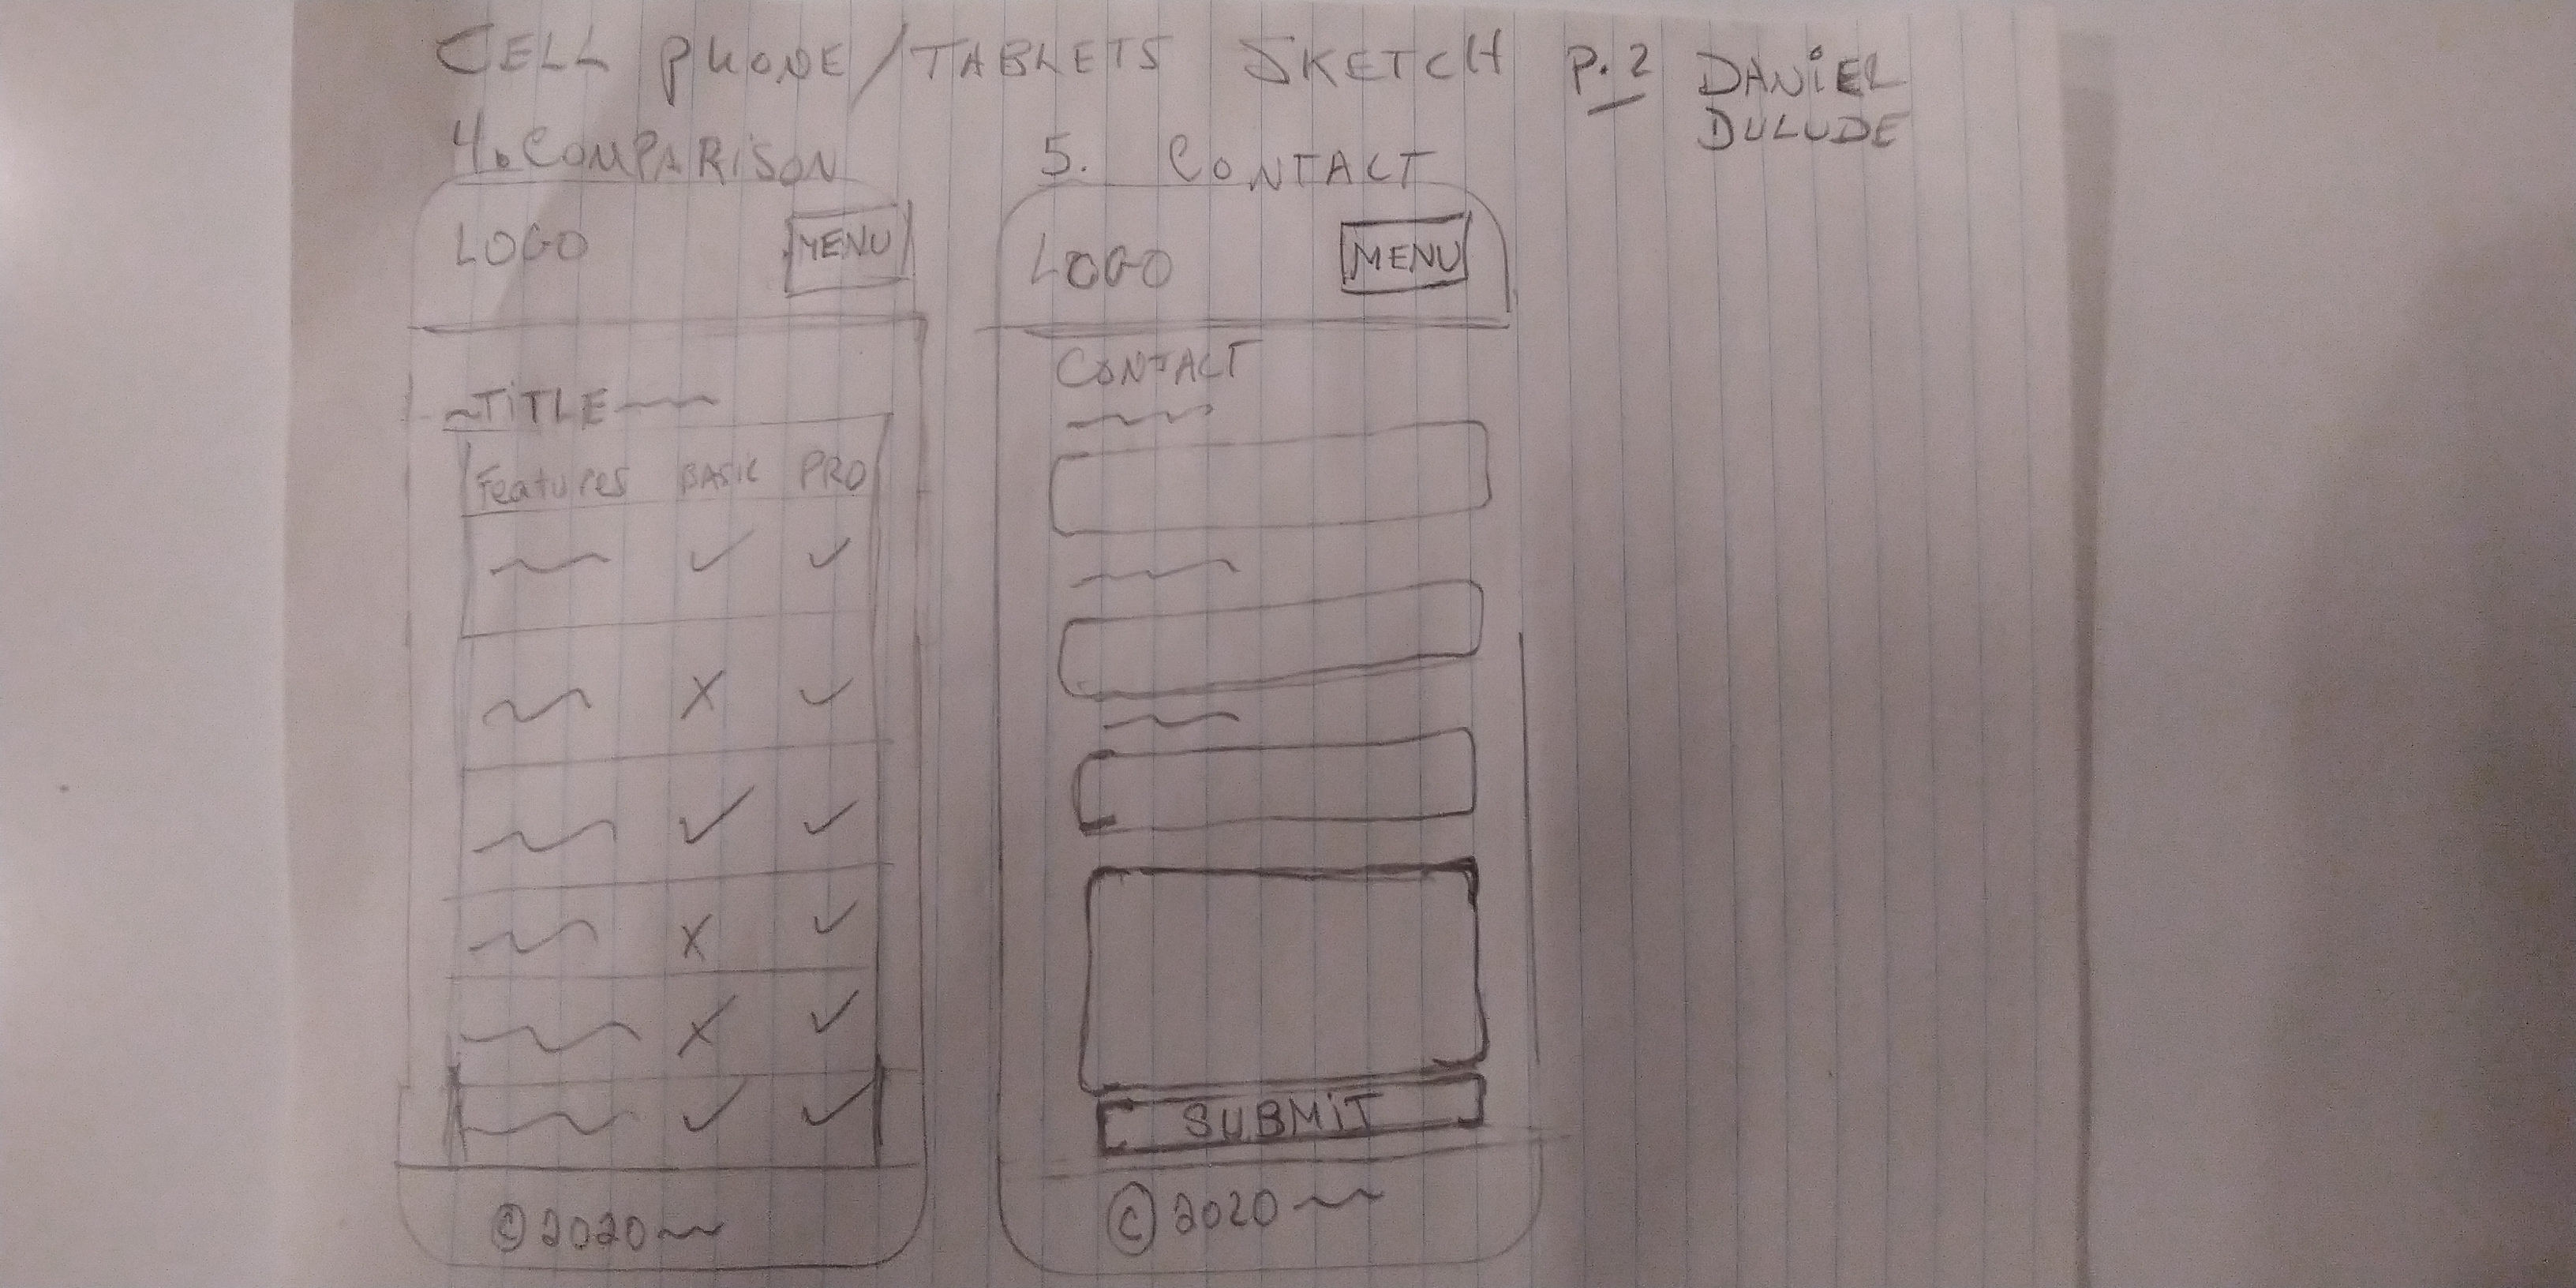 CELL PHONE/TABLETS SKETCH P.2 DANIEL
DULUDE
4. COMPARISON
LOGO MENU
TITLE
Features BASIC PRO
✓ ✓
X ✓
✓ ✓
X ✓
X ✓
✓ ✓
© 2020
5. CONTACT
LOGO MENU
CONTACT
SUBMIT
© 2020